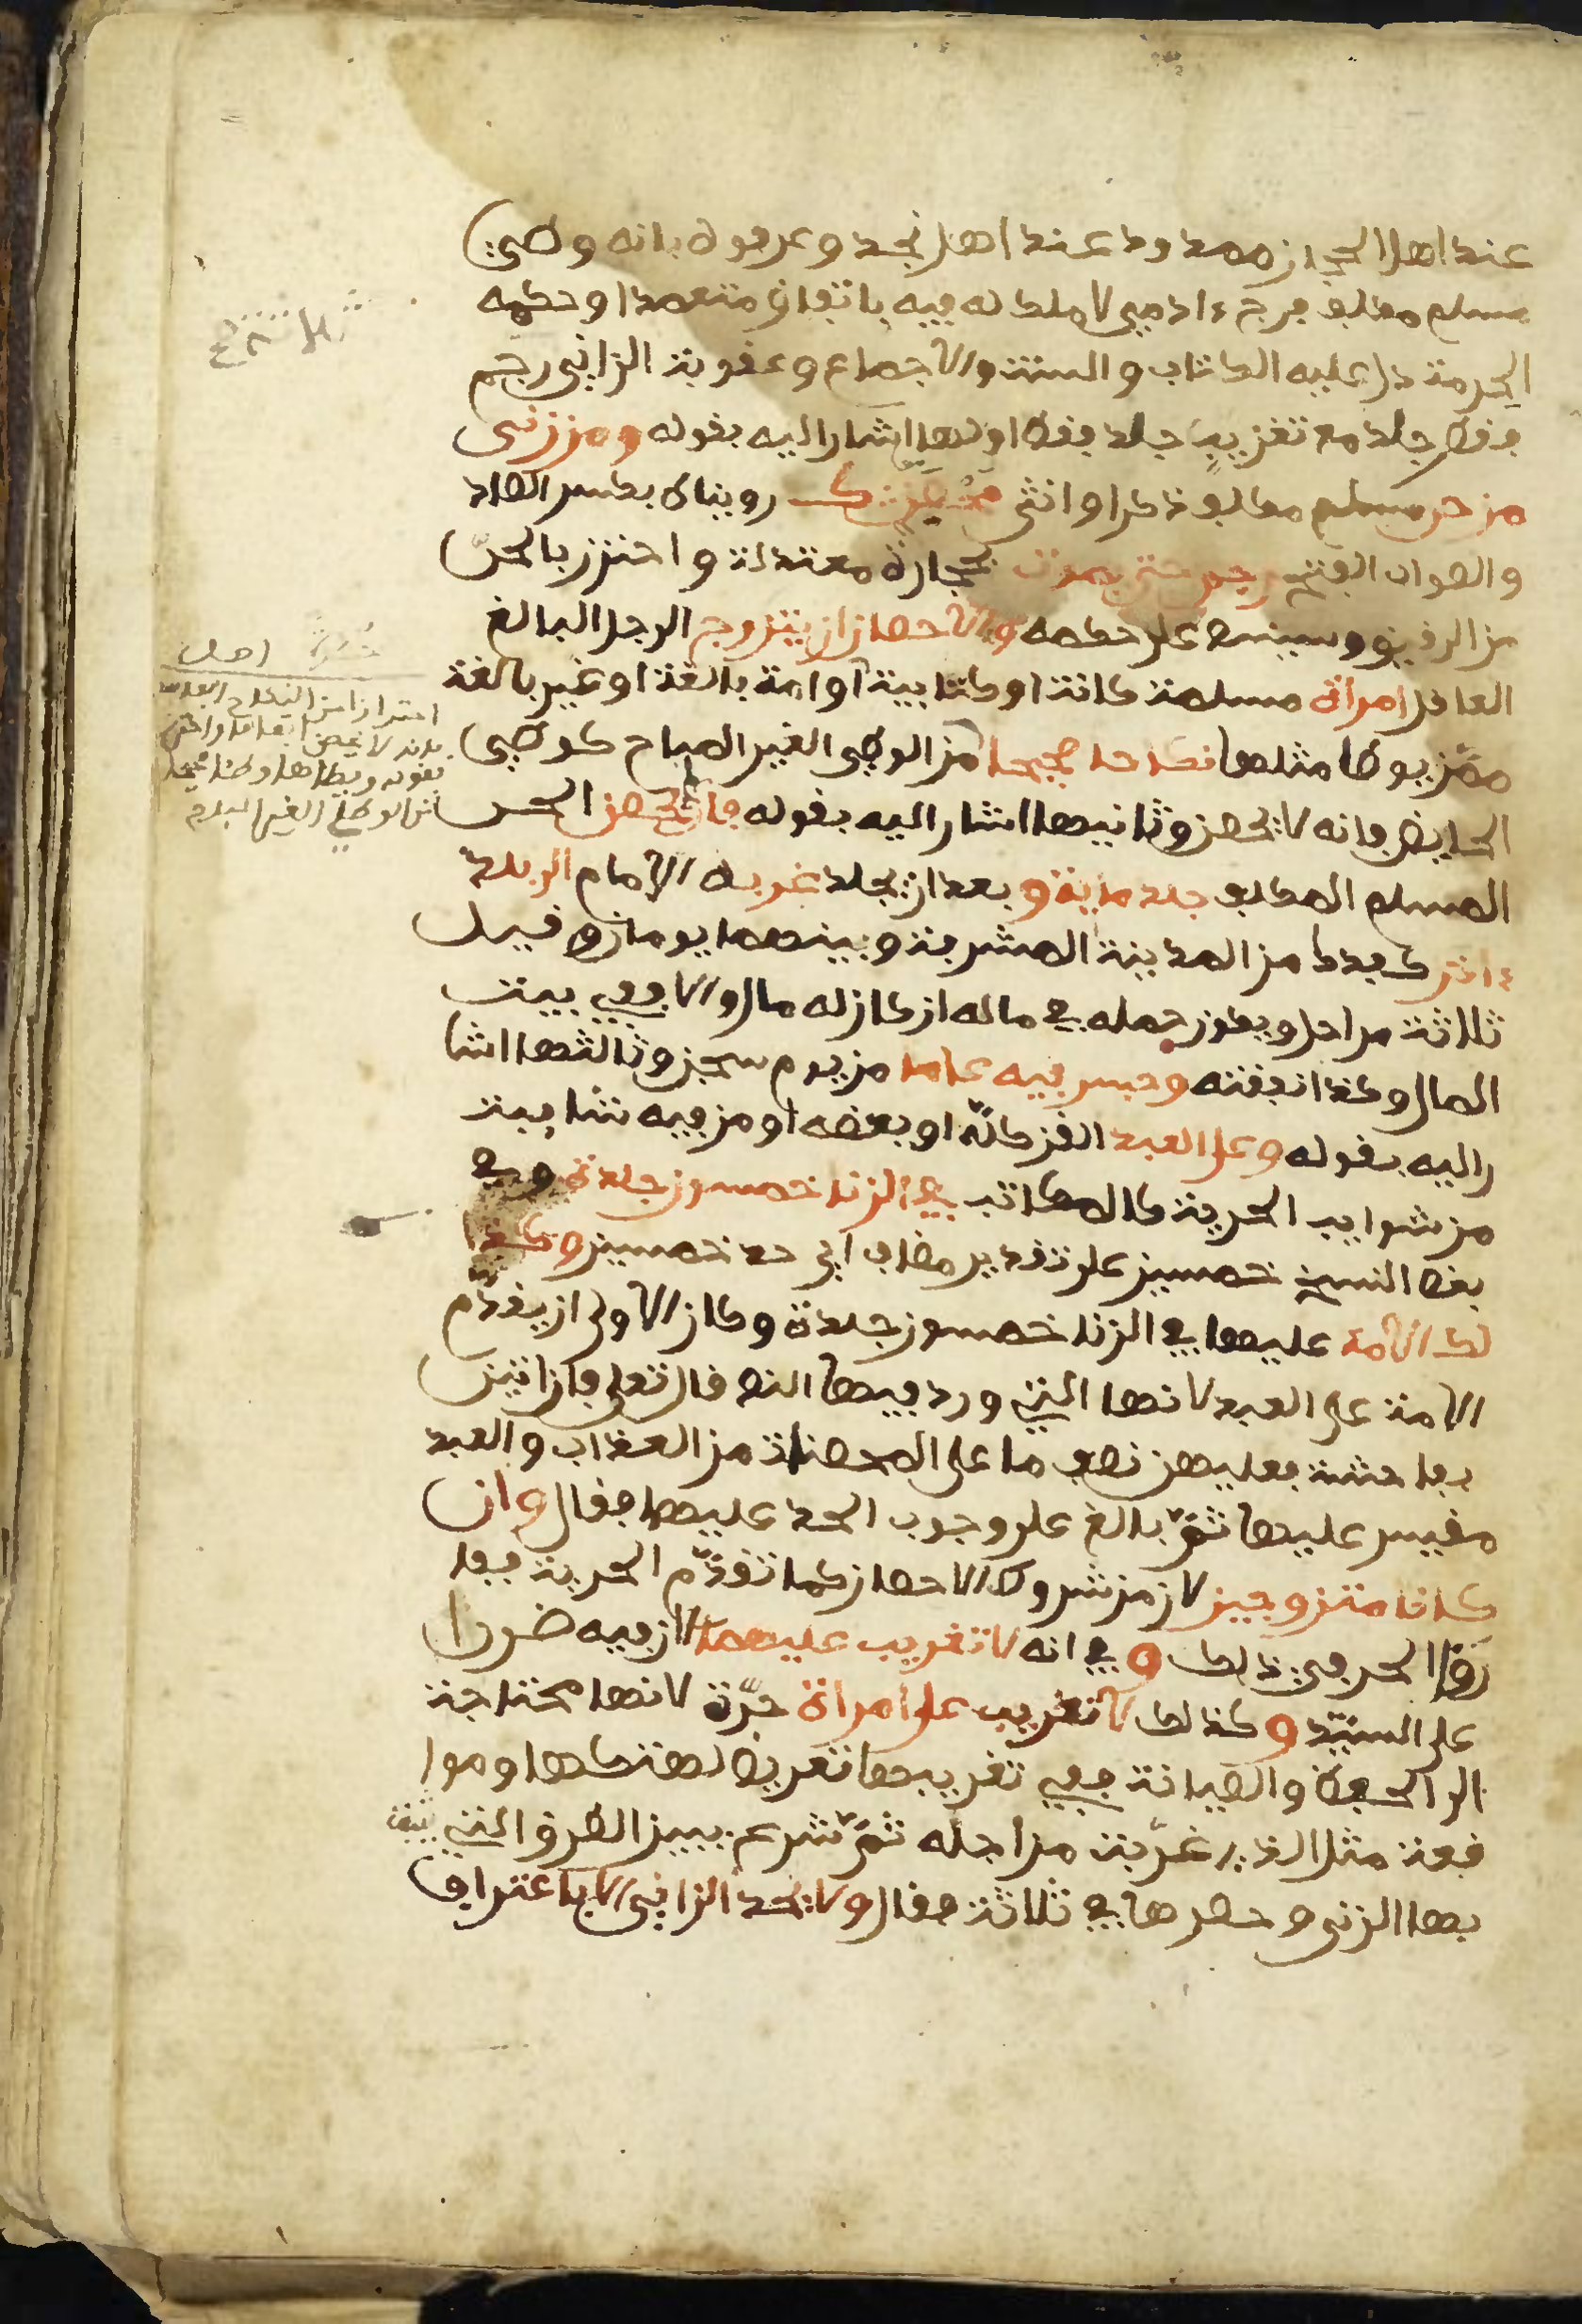 عند اهل الحجاز ممدود عند اهل نجد وعرفوه بانه وطئ
مسلم مكلف فرج ءادمي لا ملك له فيه باتفاق متعمدا وحكمه
الحرمة دل عليه الكتاب والسنة والاجماع وعقوبة الزاني رجم
فقط جلد مع تغريب جلد فقط اولها اشار اليه بقوله ومن زنى
من حر مسلم مكلف ذكرا وانثى محصن رويناه بكسر الصاد
والصواب الفتح رجم حتى يموت بحجارة معتدلة واحترز بالحرّ
من الرقيق وسينبه على حكمه والاحصان ان يتزوج الرجل البالغ
العاقل امرأة مسلمة كانت او كتابية او امة بالغة او غير بالغة
ممّن يوطا مثلها نكاحا صحيحا من الوطئ الغير المباح كوطئ
الحايض فانه لا يحصن وثانيها اشار اليه بقوله فان لم يحصن الحر
المسلم المكلف جلد مائة وبعد ان يجلد غربه الامام الى بلد
ءاخر كفدك من المدينة المشرفة وبينهما يومان وقيل
ثلاثة مراحل ويكون حمله في ماله ان كان له مال والا ففي بيت
المال وكذا نفقته وحبس فيه عاما من يوم سجن وثالثها اشا
راليه بقوله وعلى العبد القن كلّه او بعضه او من فيه شايبة
من شوايب الحرية كالمكاتب في الزنا خمسون جلدة وفي
بعض النسخ خمسين على تقدير مضاف اي حد خمسين وكذا
لك الامة عليها في الزنا خمسون جلدة وكان الاولى ان يقدّم
الامة على العبد لانها التي ورد فيها النص قال تعلى فان اتين
بفاحشة فعليهن نصف ما على المحصنات من العذاب والعبد
مقيس عليها ثمّ بالغ على وجوب الحد عليهما فقال وان
كانا متزوجين لان من شروط الاحصان كما تقدّم الحرية فيفا
رقا الحر في ذلك وفي انه لا تغريب عليهما لان فيه ضررا
على السيّد وكذلك لا تغريب على امراة حرّة لانها محتاجة
الى الحفظ والصيانة ففي تغريبها تعريض لهتكها وموا
قعة مثل الذي غرّبت من اجله ثمّ شرع يبين الطرق التي يثبت
بها الزنى وحصرها في ثلاثة فقال ولا يحد الزاني الا باعتراف
احترازا من النكاح الفاسد
فانه لا يحصن
بقوله ويطاها وطئا صحيحا
من الوطئ الغير المباح